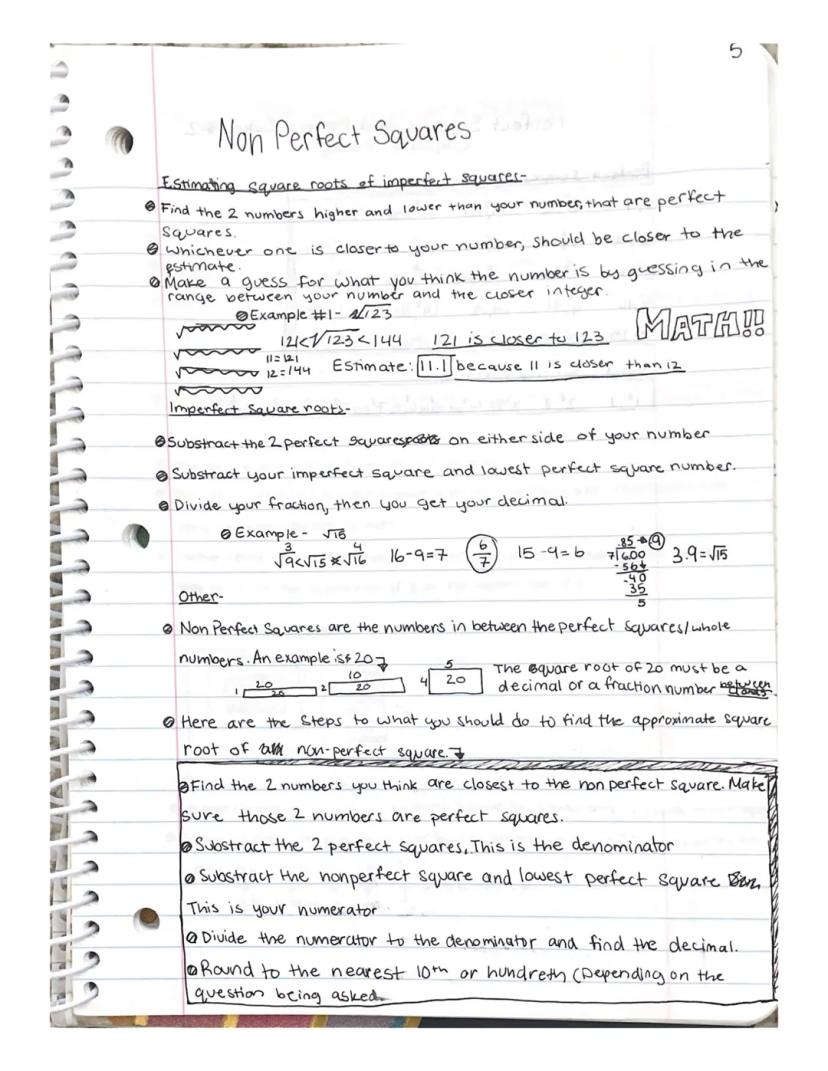 5
Non Perfect Squares
Estimating square roots of imperfect squares-
Find the 2 numbers higher and lower than your number, that are perfect
squares.
whichever one is closer to your number, should be closer to the
estimate.
Make a guess for what you think the number is by guessing in the
range between your number and the closer integer.
Example #1- √123
MATH!!
121<√123<144 121 is closer to 123
11=121
12=144 Estimate: 11.1 because 11 is closer than 12
Imperfect Square roots-
Substract the 2 perfect squares on either side of your number
Substract your imperfect square and lowest perfect square number.
Divide your fraction, then you get your decimal.
Example - √15
3 4
√9<√15<√16 16-9=7 6/7 15-9=6 3.9=√15
.85→9
7√600
-56↓
-40
35
5
Other-
Non Perfect Squares are the numbers in between the perfect squares/whole
numbers. An example is 20
1 20 20 2 10 20 4 5 20 The square root of 20 must be a
decimal or a fraction number between
Here are the steps to what you should do to find the approximate square
root of non-perfect square.
Find the 2 numbers you think are closest to the non perfect square. Make
sure those 2 numbers are perfect squares.
Substract the 2 perfect squares, This is the denominator
Substract the nonperfect square and lowest perfect square
This is your numerator
Divide the numerator to the denominator and find the decimal.
Round to the nearest 10th or hundreth (Depending on the
question being asked.